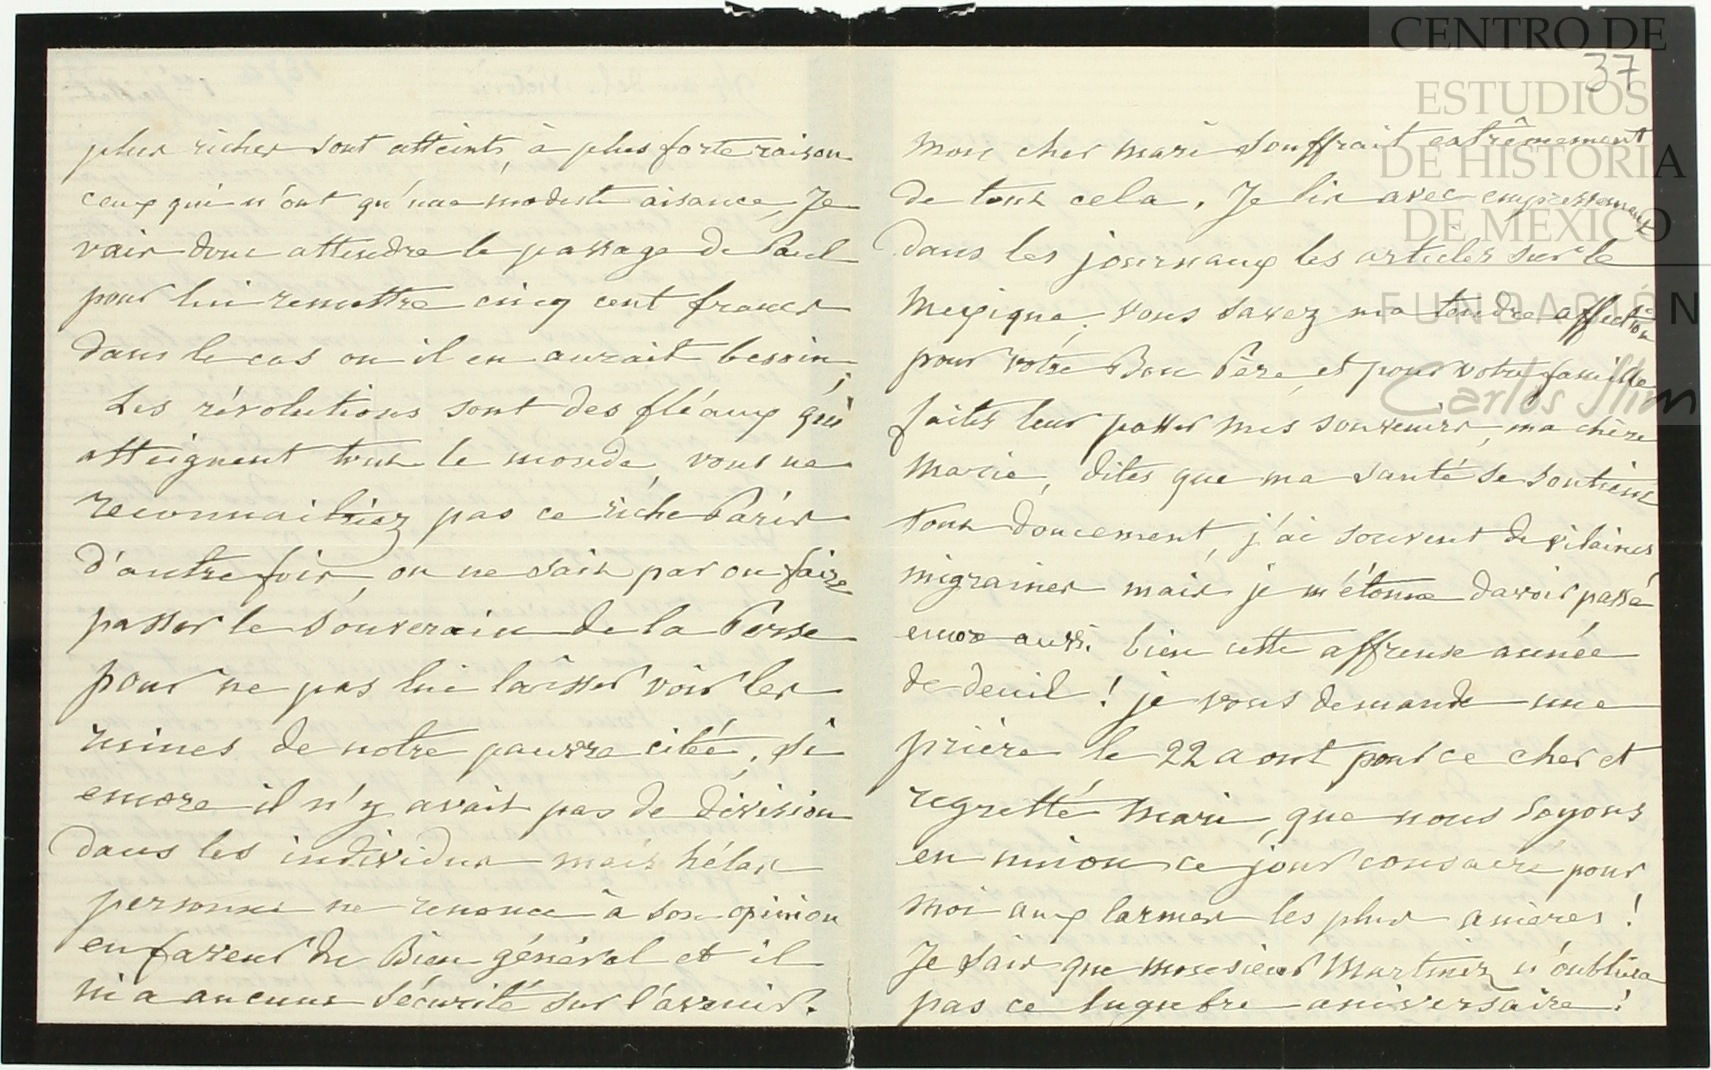 plus riches sont atteints, à plus forte raison
ceux qui n'ont qu'une modeste aisance, Je
vais donc attendre le passage de Paul
pour lui remettre cinq cent francs
dans le cas ou il en aurait besoin,
Les révolutions sont des fléaux qui
atteignent tout le monde, vous ne
reconnaitriez pas ce riche Paris
d'autrefois, on ne sait par ou faire
passer le Souverain de la Perse
pour ne pas lui laisser voir les
ruines de notre pauvre cité, si
encore il n'y avait pas de division
dans les individus mais hélas
personne ne renonce à son opinion
en faveur du Bien général et il
ni a aucune sécurité sur l'avenir.
37
Mon cher mari souffrait extrêmement
de tout cela. Je lis avec empressement
dans les journaux les articles sur le
Mexique, vous savez ma tendre affection
pour votre Bon Père, et pour votre famille
faites leur passer mes souvenirs, ma chère
Marie, dites que ma santé se soutient
tout doucement, j'ai souvent de vilaines
migraines mais je m'étonne davoir passé
encore aussi bien cette affreuse année
de deuil! je vous demande une
prière le 22 aout pour ce cher et
regretté mari, que nous soyons
en union ce jour consacré pour
moi aux larmes les plus amères!
Je sais que monsieur Martinez n'oubliera
pas ce lugubre aniversaire!
CENTRO DE
ESTUDIOS
DE HISTORIA
DE MEXICO
FUNDACIÓN
Carlos Slim